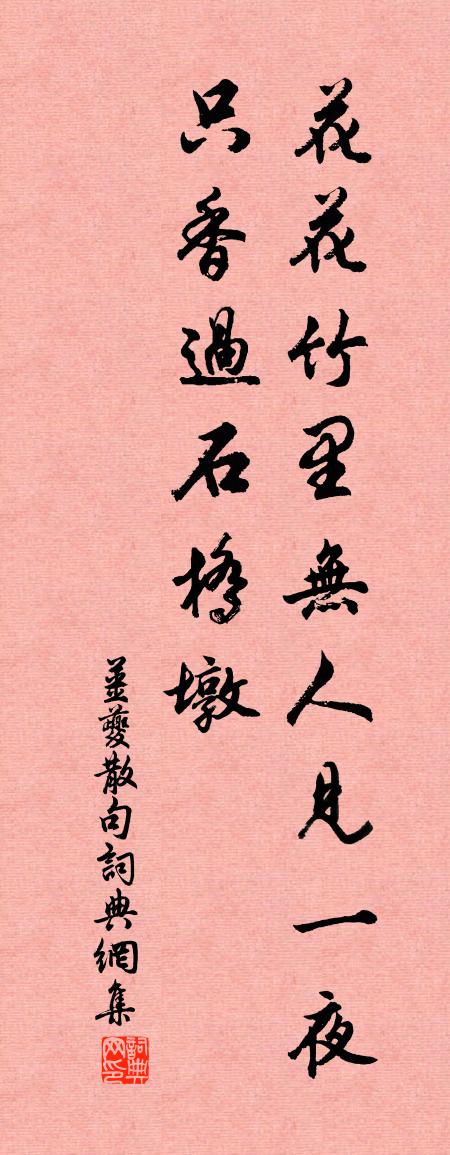 花花竹里無人見一夜
只香過石橋墩
姜夔散句詞典網集
詞典网印